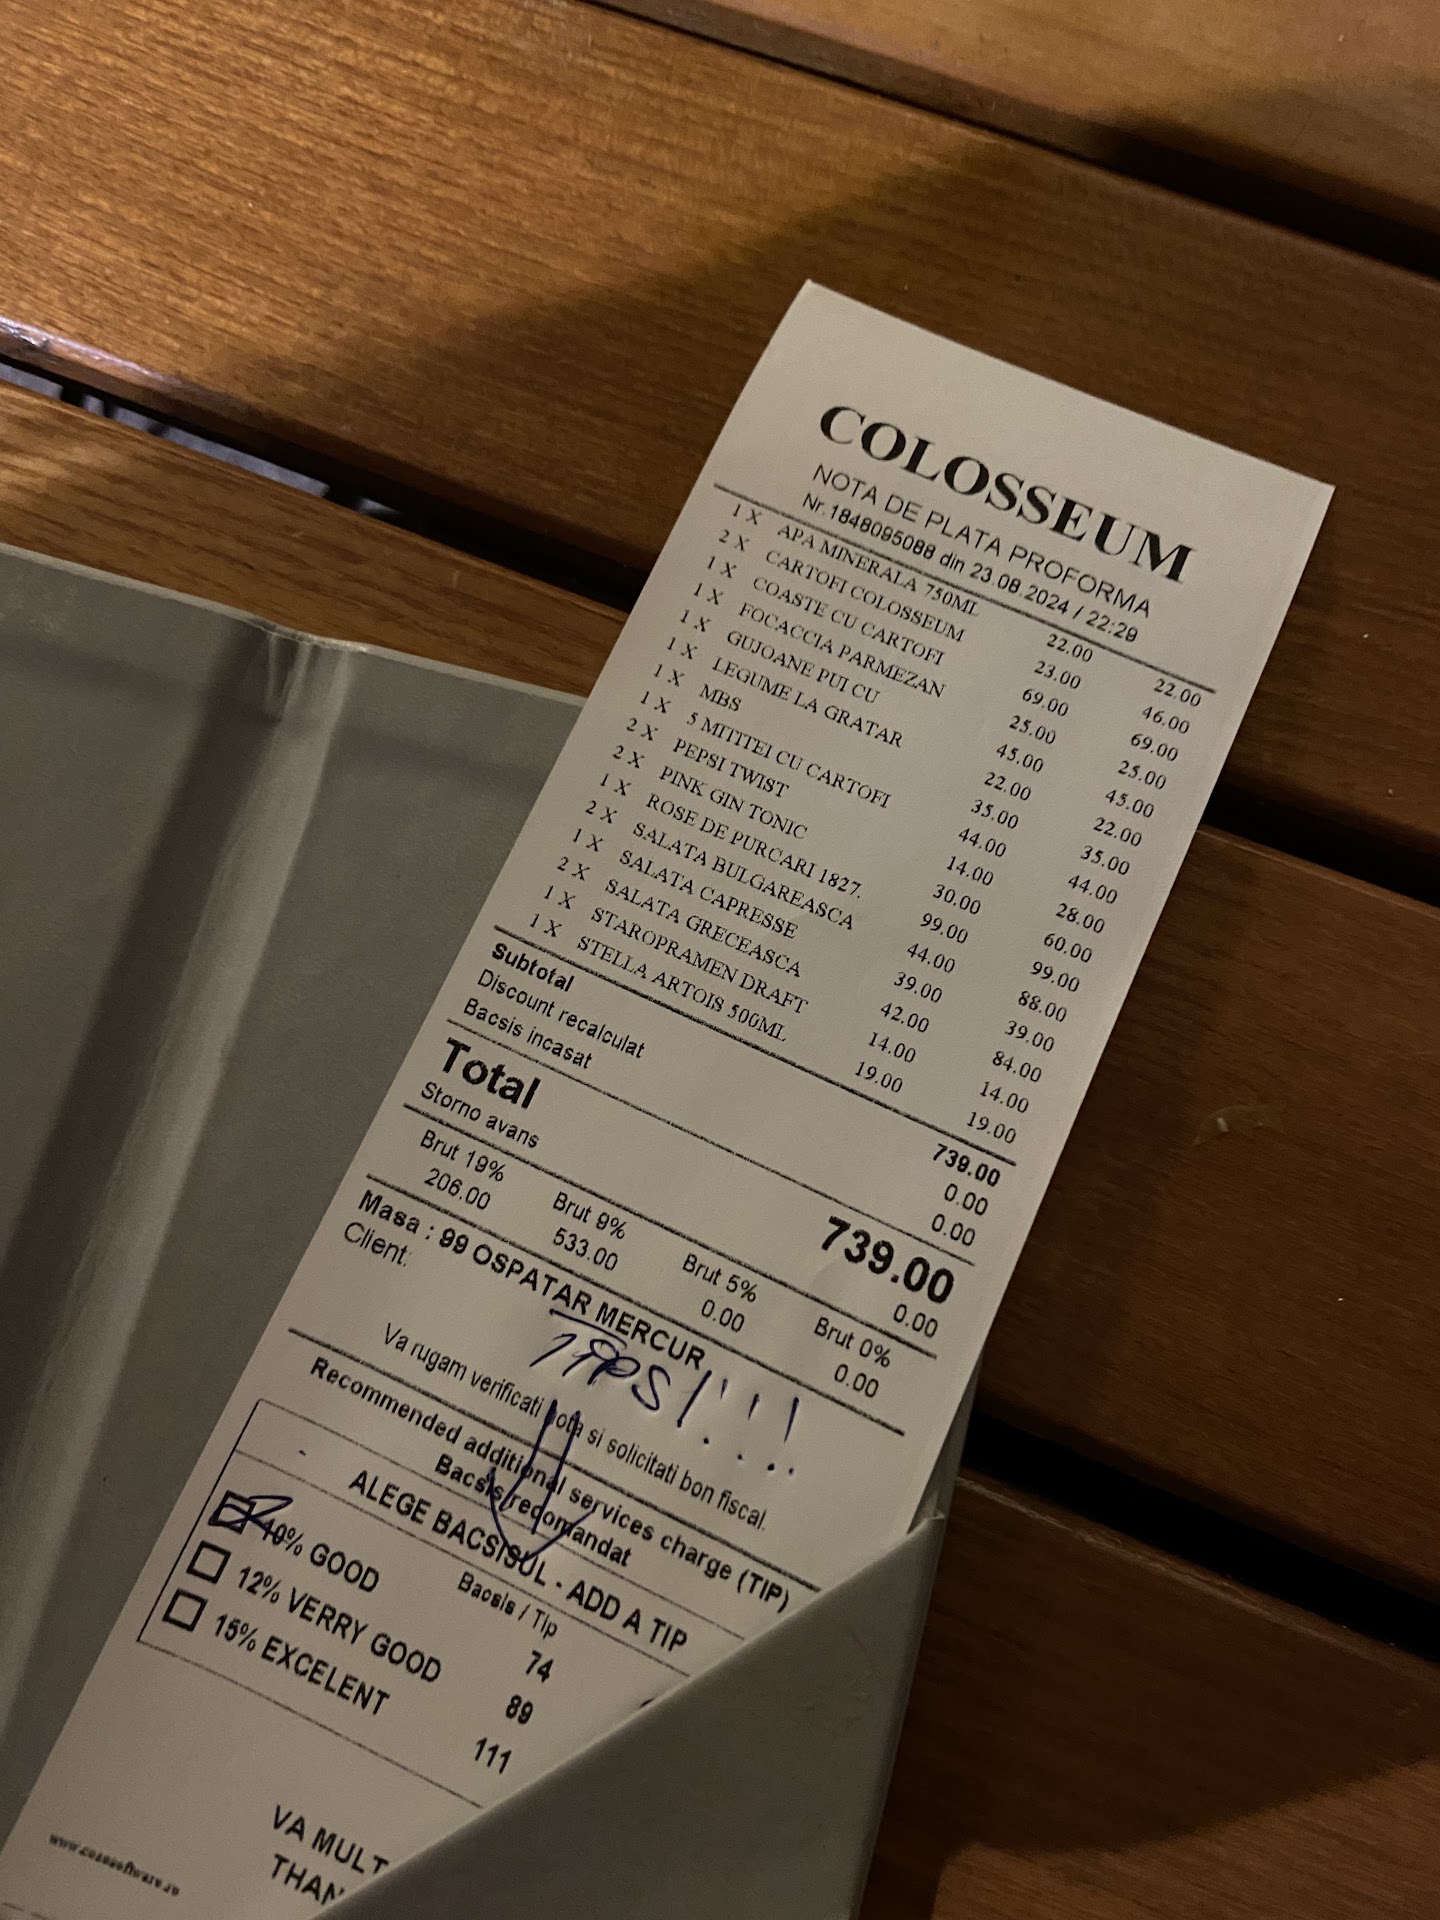 COLOSSEUM
NOTA DE PLATA PROFORMA
Nr.1848095088 din 23.08.2024 / 22:29
1 X APA MINERALA 750ML 22.00 22.00
2 X CARTOFI COLOSSEUM 23.00 46.00
1 X COASTE CU CARTOFI 69.00 69.00
1 X FOCACCIA PARMEZAN 25.00 25.00
1 X GUJOANE PUI CU 45.00 45.00
1 X LEGUME LA GRATAR 22.00 22.00
1 X MBS 35.00 35.00
1 X 5 MITITEI CU CARTOFI 44.00 44.00
2 X PEPSI TWIST 14.00 28.00
2 X PINK GIN TONIC 30.00 60.00
1 X ROSE DE PURCARI 1827. 99.00 99.00
2 X SALATA BULGAREASCA 44.00 88.00
1 X SALATA CAPRESSE 39.00 39.00
2 X SALATA GRECEASCA 42.00 84.00
1 X STAROPRAMEN DRAFT 14.00 14.00
1 X STELLA ARTOIS 500ML 19.00 19.00
Subtotal 739.00
Discount recalculat 0.00
Bacsis incasat 0.00
Total 739.00
Storno avans 0.00
Brut 19% Brut 9% Brut 5% Brut 0%
206.00 533.00 0.00 0.00
Masa : 99 OSPATAR MERCUR
Client:
TIPS!!!!
Va rugam verificati nota si solicitati bon fiscal.
Recommended additional services charge (TIP)
Bacsis recomandat
ALEGE BACSISUL - ADD A TIP
Bacsis / Tip
10% GOOD 74
12% VERRY GOOD 89
15% EXCELENT 111
VA MULT
THAN